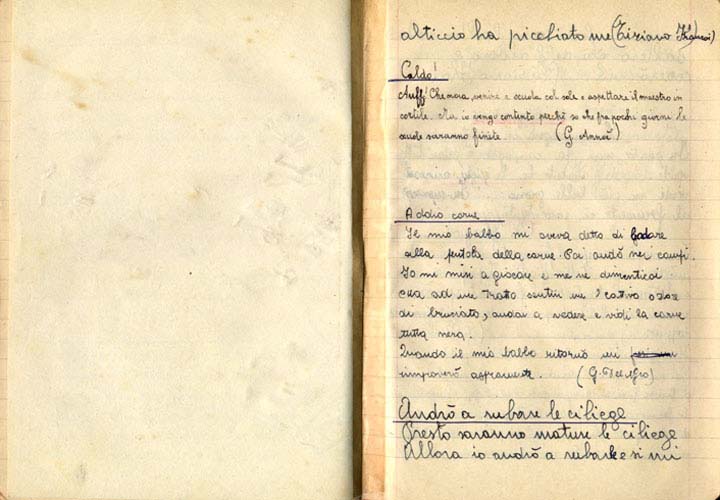 alticcio ha picchiato me (Tiziano
Caldo!
Auff! Che noia, venire a scuola col sole e aspettare il maestro in
cortile. Ma io vengo contento perchè so che fra pochi giorni le
scuole saranno finite. (G.
Addio carne
Il mio babbo mi aveva detto di badare
alla pentola della carne. Poi andò nei campi.
Io mi misi a giocare e me ne dimenticai
ma ad un tratto sentii un cattivo odore
di bruciato, andai a vedere e vidi la carne
tutta nera.
Quando il mio babbo ritornò mi
rimproverò aspramente. (G.
Andrò a rubare le ciliege
Presto saranno mature le ciliege
Allora io andrò a rubarle e si mi